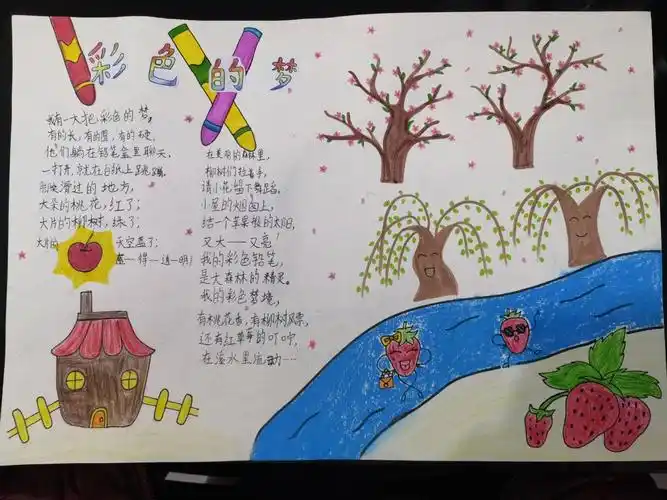 彩色的梦
我有一大把彩色的梦,
有的长,有的圆,有的硬,
他们躺在铅笔盒里聊天,
一打开,就在白纸上跳蹦,
滑过的地方,
大朵的桃花,红了;
大片的柳树,绿了;
大片的 天空蓝了;
蓝—得—透—明!
在美丽的森林里,
柳树们拉着手,
请小花留下舞蹈,
小屋的烟囱上,
结一个苹果般的太阳,
又大——又亮!
我的彩色铅笔,
是大森林的精灵。
我的彩色梦境,
有桃花香,有柳树风飘,
还有红草莓的叮咛,
在溪水里流动…